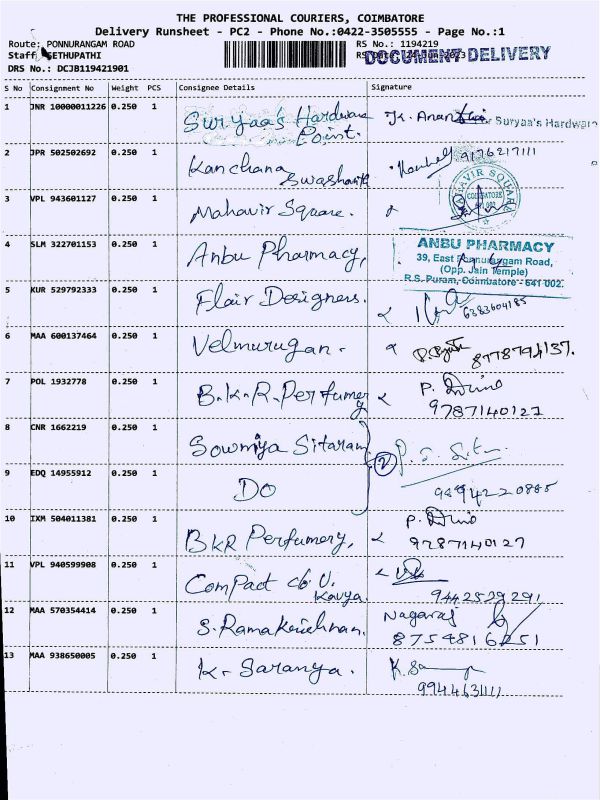 THE PROFESSIONAL COURIERS, COIMBATORE
Delivery Runsheet - PC2 - Phone No.:0422-3505555 - Page No.:1
Route: PONNURANGAM ROAD RS No.: 1194219
Staff SETHUPATHI DOCUMENT DELIVERY
DRS No.: DCJB119421901
S No Consignment No Weight PCS Consignee Details Signature
1 JNR 10000011226 0.250 1 Suryaa's Hardware Point. K. Anand For Suryaa's Hardware
2 JPR 502502692 0.250 1 Kanchana Swasharth 9176217111
3 VPL 943601127 0.250 1 Mahavir Square. MAHAVIR SQUARE COIMBATORE
4 SLM 322701153 0.250 1 Anbu Pharmacy,
ANBU PHARMACY
39, East Ponnurangam Road,
(Opp. Jain Temple)
R.S. Puram, Coimbatore - 641 002.
5 KUR 529792333 0.250 1 Flair Designers. 6383604185
6 MAA 600137464 0.250 1 Velmurugan. 8778794137.
7 POL 1932778 0.250 1 B.K.R. Perfumery P.
9787140127
8 CNR 1662219 0.250 1 Sowmiya Sitaram 2
9 EDQ 14955912 0.250 1 DO 9494220885
10 IXM 504011381 0.250 1 BKR Perfumery, P.
9787140127
11 VPL 940599908 0.250 1 Compact c/o U. Kavya. 9442529291
12 MAA 570354414 0.250 1 S. Ramakrishnan. Nagaraj
8754816251
13 MAA 938650005 0.250 1 K. Saranya. K. Sa
9944631111